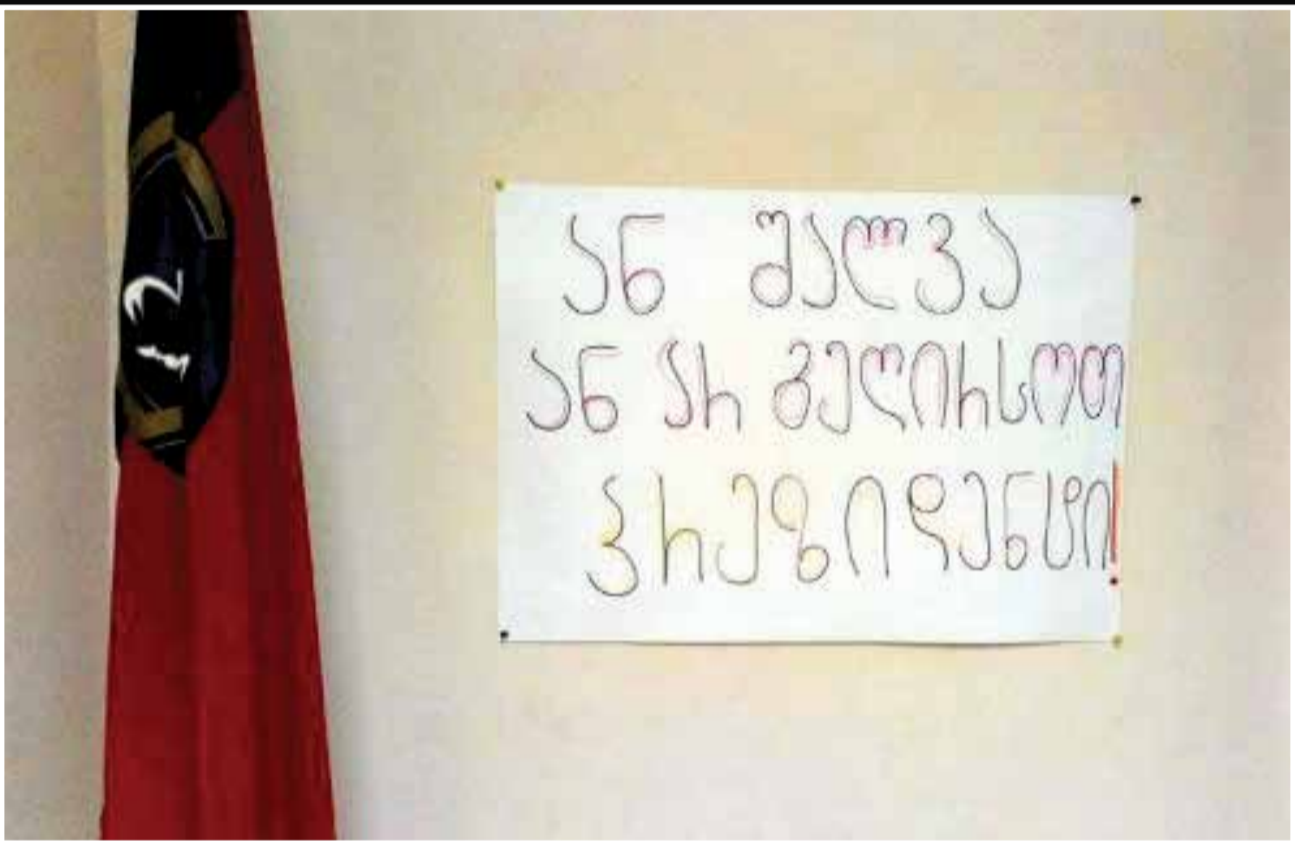 ან შალვა
ან არ გეღირსოთ
პრეზიდენტი!